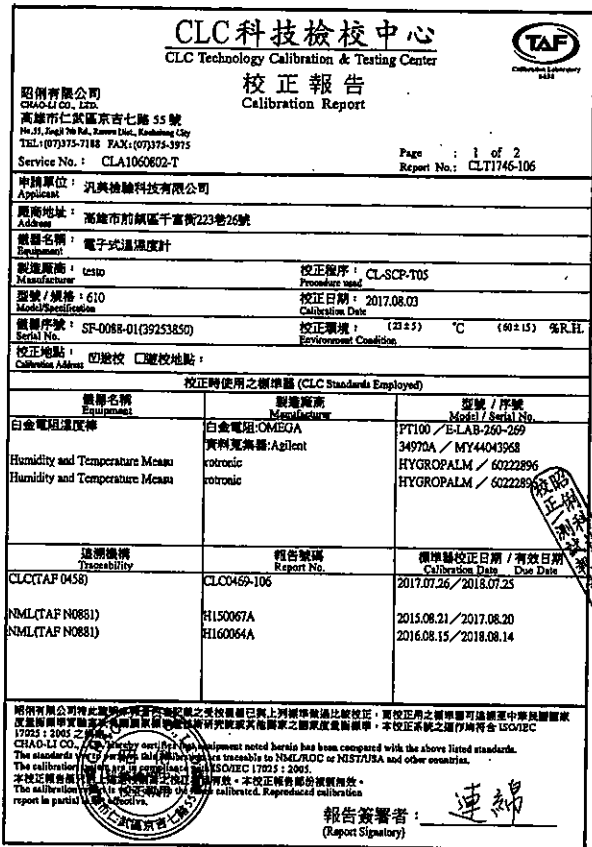 CLC科技檢校中心
CLC Technology Calibration & Testing Center
TAF
Calibration Laboratory
校正報告
Calibration Report
昭俐有限公司
CHAO-LI CO., LTD.
高雄市仁武區京吉七路 55 號
No.55, Jingji 7th Rd., Renwu Dist., Kaohsiung City
TEL:(07)375-7188 FAX:(07)375-3975
Service No.: CLA1060802-T
Page : 1 of 2
Report No.: CLT1746-106
申請單位:
Applicant
汎美檢驗科技有限公司
廠商地址:
Address
高雄市前鎮區千富街223巷26號
儀器名稱:
Equipment
電子式溫濕度計
製造廠商: testo
Manufacturer
校正程序: CL-SCP-T05
Procedure used
型號/規格: 610
Model/Specification
校正日期: 2017.08.03
Calibration Date
儀器序號: SF-0088-01(39253850)
Serial No.
校正環境: (23±5) ℃ (60±15) %R.H.
Environment Condition
校正地點: ☑送校 □遊校地點:
Calibration Address
校正時使用之標準器 (CLC Standards Employed)
儀器名稱 製造廠商 型號/序號
Equipment Manufacturer Model / Serial No.
白金電阻溫度棒 白金電阻:OMEGA PT100/E-LAB-260-269
資料蒐集器:Agilent 34970A / MY44043968
Humidity and Temperature Measu rotronic HYGROPALM / 60222896
Humidity and Temperature Measu rotronic HYGROPALM / 6022289
追溯機構 報告號碼 標準器校正日期/有效日期
Traceability Report No. Calibration Date Due Date
CLC(TAF 0458) CLC0469-106 2017.07.26/2018.07.25
NML(TAF N0881) H150067A 2015.08.21/2017.08.20
NML(TAF N0881) H160064A 2016.08.15/2018.08.14
昭俐有限公司特此證明 之受校儀器已與上列標準做過比較校正,而校正用之標準器可追溯至中華民國國家
度量衡標準實驗室 研究院或其他國家之國家度量衡標準,本校正系統之運作均符合 ISO/IEC
17025:2005 之
CHAO-LI CO., hereby certifies that equipment noted herein has been compared with the above listed standards.
The standards are traceable to NML/ROC or NIST/USA and other countries.
The calibration in compliance ISO/IEC 17025:2005.
有效。本校正報告部份複製無效。
The calibration calibrated. Reproduced calibration
report in partial effective.
報告簽署者: 連綿
(Report Signatory)